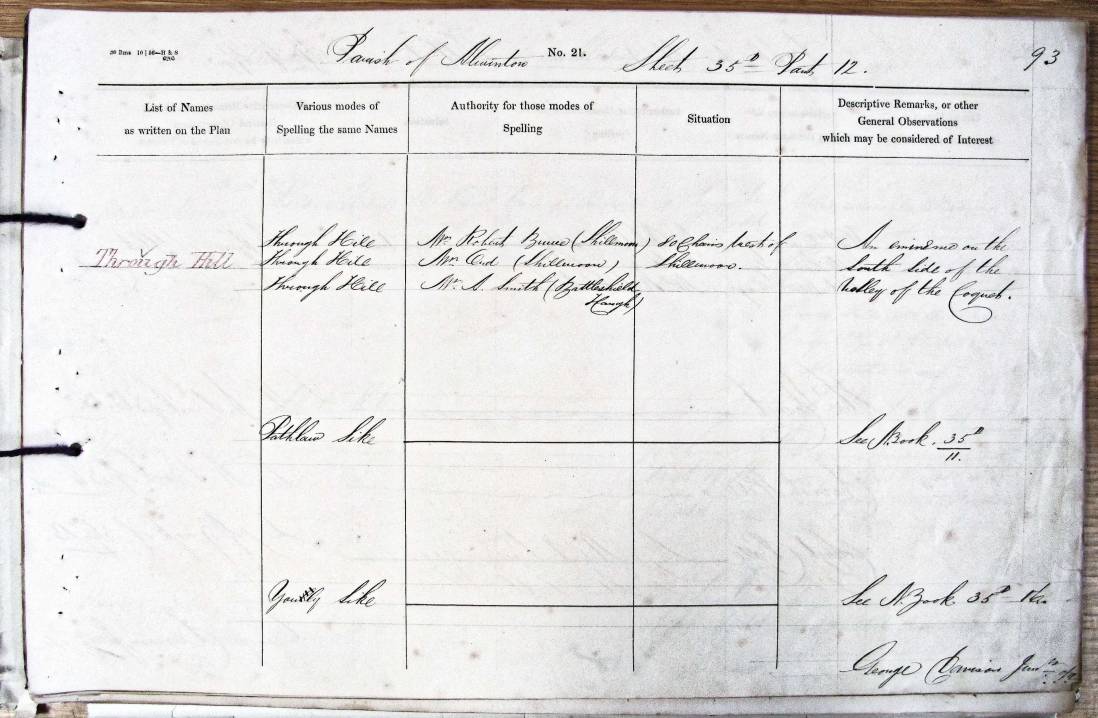 Parish of Alwinton No. 21. Sheet 35D Part 12. 93
List of Names
as written on the Plan
Various modes of
Spelling the same Names
Authority for those modes of
Spelling
Situation
Descriptive Remarks, or other
General Observations
which may be considered of Interest
Through Hill
Through Hill
Through Hill
Through Hill
Mr. Robert Bruce (Shillmoor)
Mr. Ord (Shillmoor)
Mr. A. Smith (Battleshield
Haugh)
80 Chains West of
Shillmoor.
An eminence on the
South Side of the
Valley of the Coquet.
Pathlaw Sike
See N. Book. 35D
11.
Sike
See N. Book 35D
George Davison